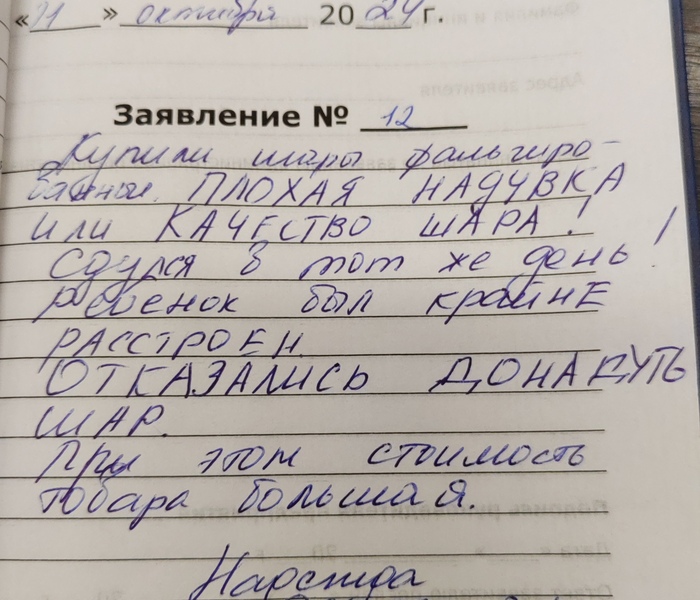 «21» октября 2024 г.
Заявление № 12
Купили шары фольгиро-
ванные. ПЛОХАЯ НАДУВКА
ИЛИ КАЧЕСТВО ШАРА!
Сдулся в тот же день!
Ребенок был крайнЕ
РАССТРОЕН.
ОТКАЗАЛИСЬ ДОНАДУТЬ
ШАР.
При этом стоимость
товара большая.